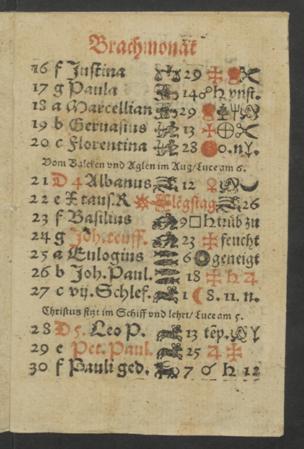 Brachmonat
16 f Justina 29
17 g Paula 14 ☍ ♄ vnst.
18 a Marcellian 29
19 b Geruasius 13
20 c Florentina 28 0. n.
Vom Balcken vnd Aglen im Aug/ Luce am 6.
21 D 4 Albanus 12 ♀
22 e X taus. R 26
23 f Basilius 9 □ ♄ trüb zu
24 g Joh. teuff. 23 feucht
25 a Eulogius 6 geneigt
26 b Joh. Paul. 18 ♄ ♃
27 c vij. Schlef. 1 8. 11. n.
Christus sitzt im Schiff vnd lehrt/ Luce am 5.
28 D 5. Leo P. 13 tēp.
29 e Pet. Paul. 25 ♃
30 f Pauli ged. 7 ♂ ♄ 12